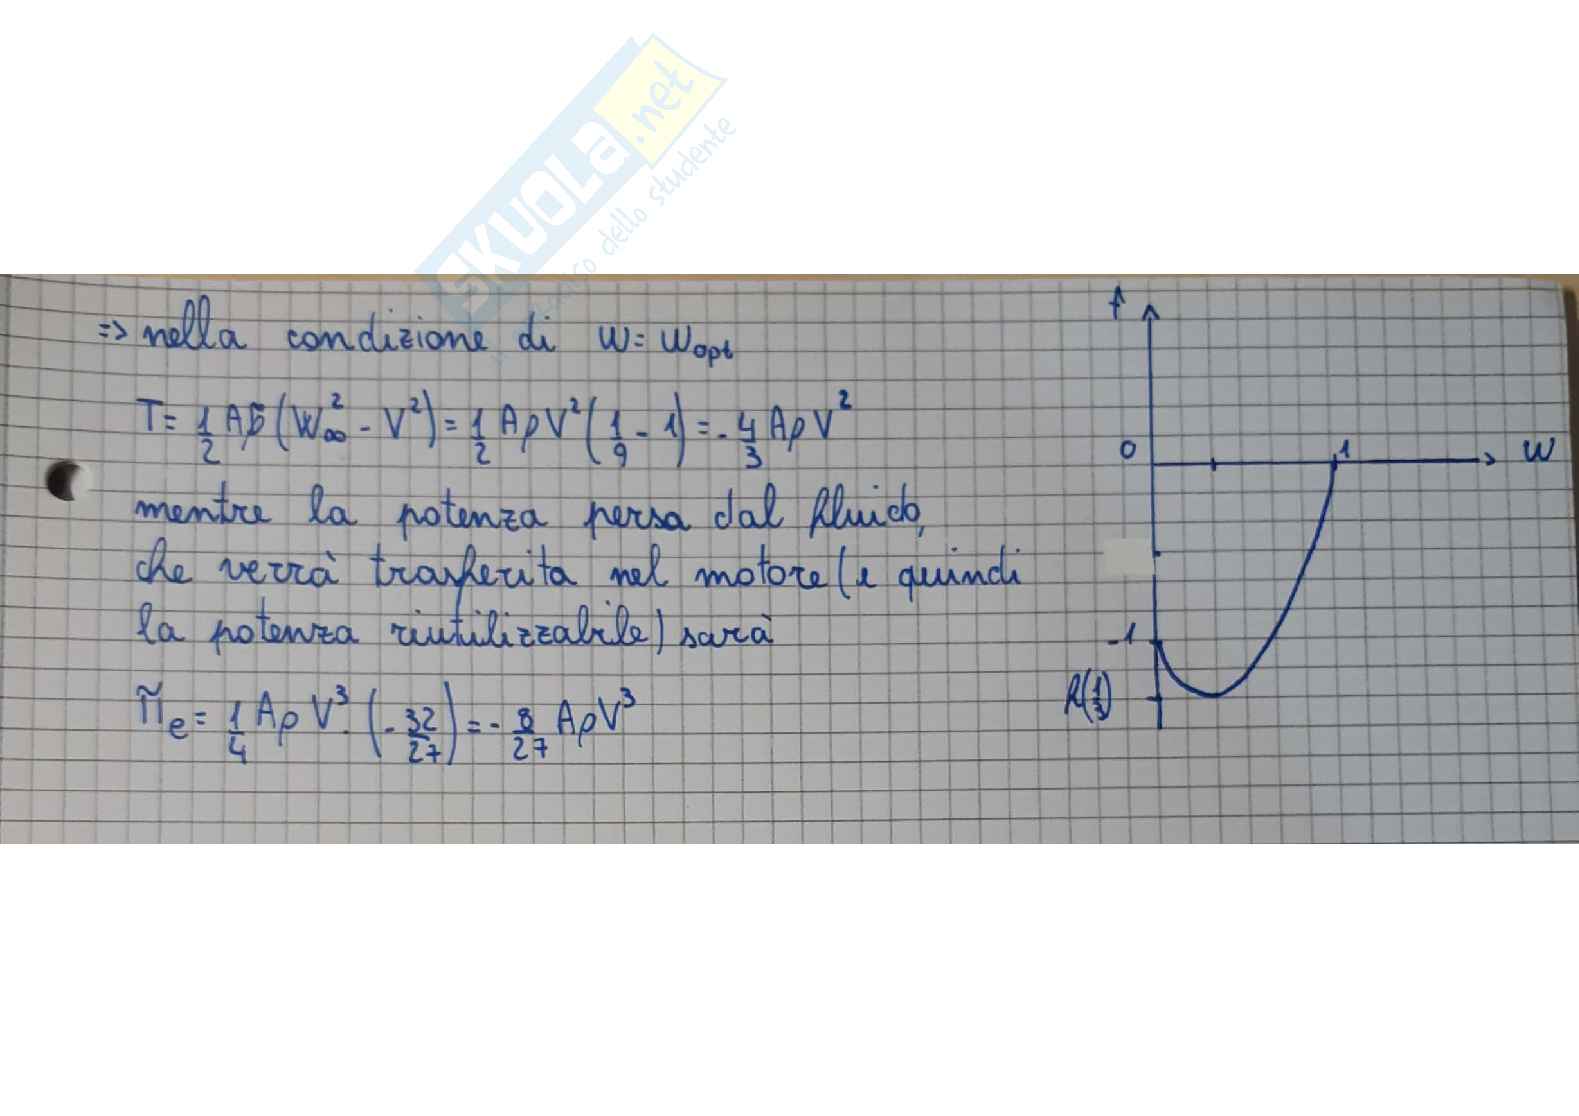 SKUOLA.net
dello studente
=> nella condizione di W = W_opt
T = 1/2 Aρ (W∞² - V²) = 1/2 AρV² (1/9 - 1) = - 4/3 AρV²
mentre la potenza persa dal fluido,
che verrà trasferita nel motore (e quindi
la potenza riutilizzabile) sarà
π̃e = 1/4 AρV³ · (- 32/27) = - 8/27 AρV³
f
0 1 W
-1
f(1/3)